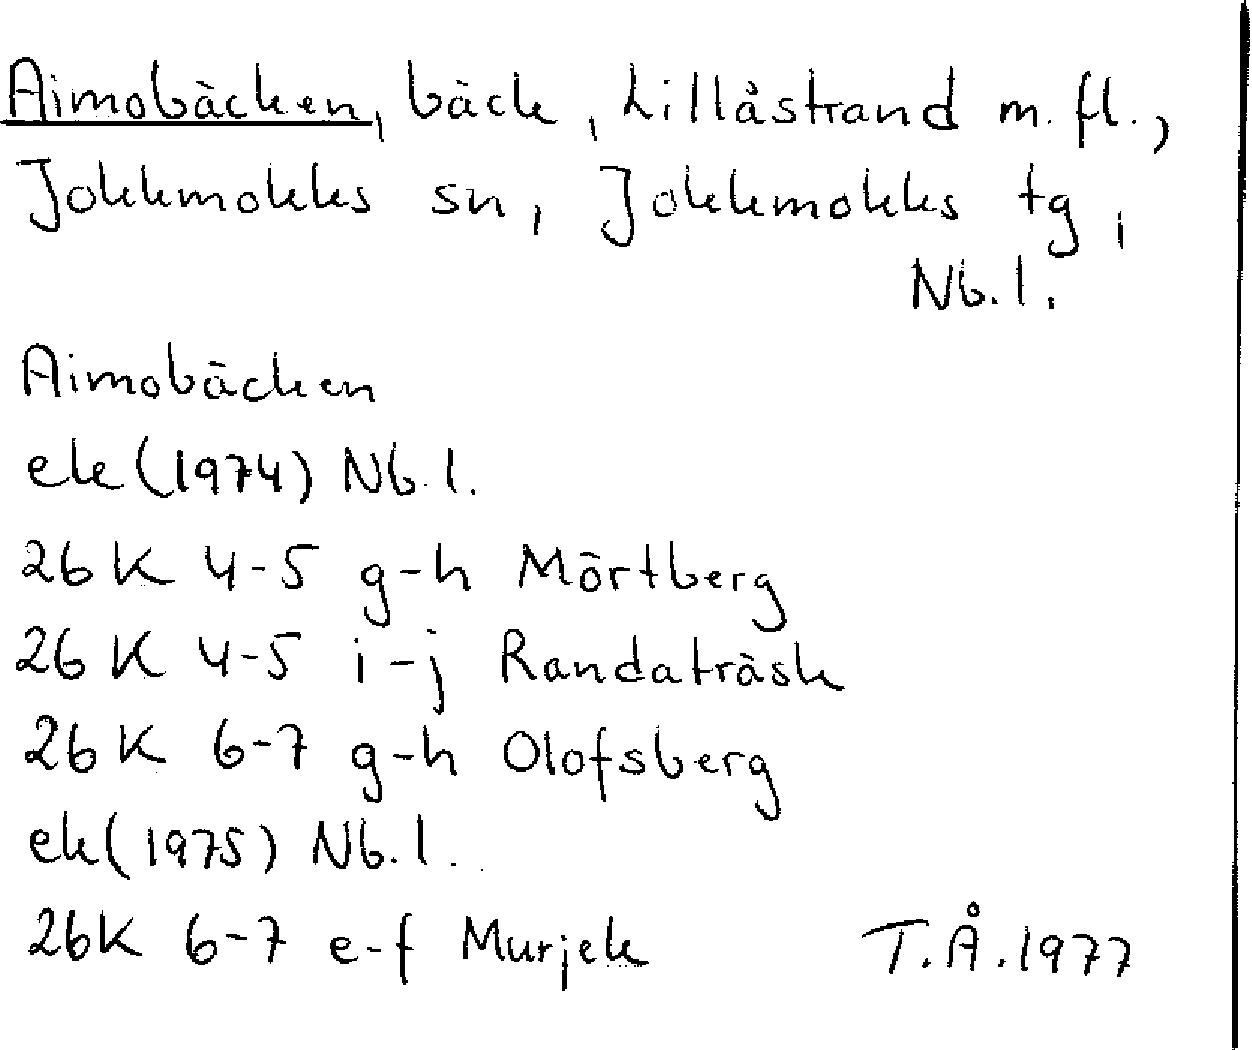 Aimobäcken, bäck, Lillåstrand m. fl.,
Jokkmokks sn, Jokkmokks tg,
Nb. l.
Aimobäcken
ek (1974) Nb. l.
26 K 4-5 g-h Mörtberg
26 K 4-5 i-j Randaträsk
26 K 6-7 g-h Olofsberg
ek (1975) Nb. l.
26K 6-7 e-f Murjek T.Å. 1977